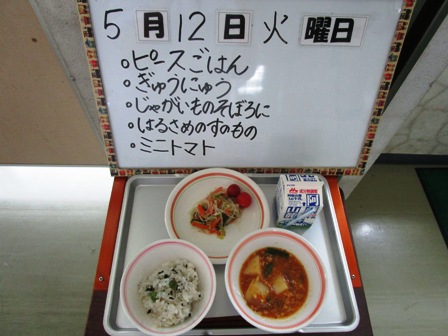 5月12日火曜日
・ピースごはん
・ぎゅうにゅう
・じゃがいものそぼろに
・はるさめのすのもの
・ミニトマト